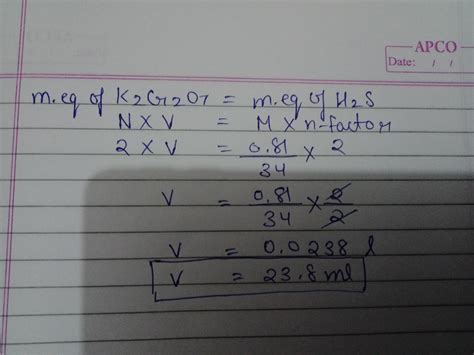 APCO
Date: / /
m.eq of K2Cr2O7 = m.eq of H2S
N x V = M x n-factor
2 x V = 0.81/34 x 2
V = 0.81/34 x 2/2
V = 0.0238 l
V = 23.8 ml